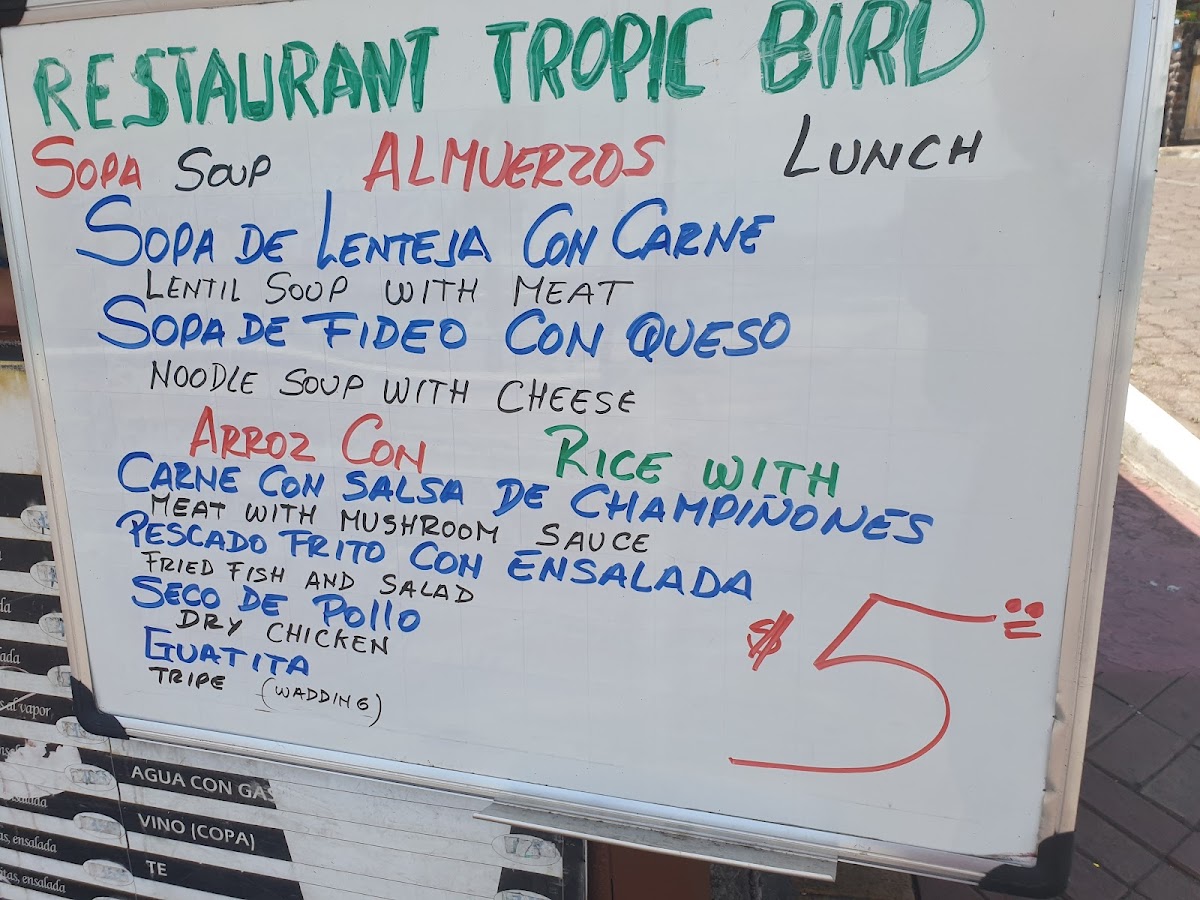 RESTAURANT TROPIC BIRD
SOPA SOUP ALMUERZOS LUNCH
SOPA DE LENTEJA CON CARNE
LENTIL SOUP WITH MEAT
SOPA DE FIDEO CON QUESO
NOODLE SOUP WITH CHEESE
ARROZ CON RICE WITH
CARNE CON SALSA DE CHAMPIÑONES
MEAT WITH MUSHROOM SAUCE
PESCADO FRITO CON ENSALADA
FRIED FISH AND SALAD
SECO DE POllO
DRY CHICKEN
GUATITA
TRIPE (WADDING)
$5
al vapor
AGUA CON GAS
VINO (COPA)
ensalada
TE
ensalada